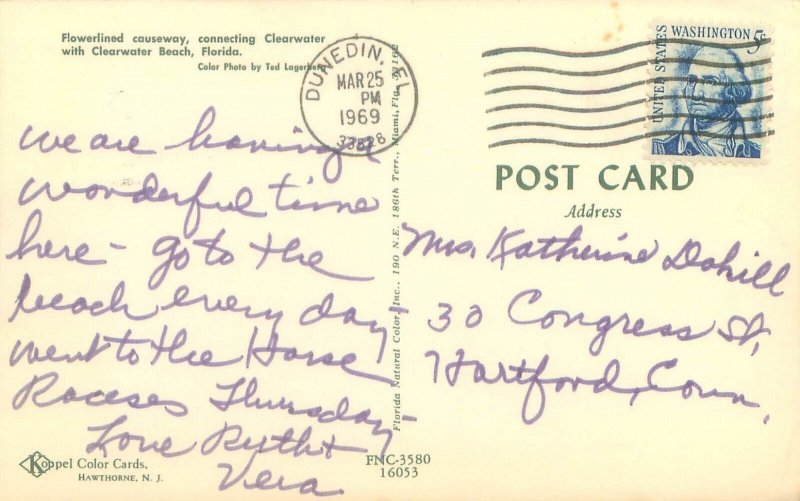 Flowerlined causeway, connecting Clearwater
with Clearwater Beach, Florida.
Color Photo by Ted Lagerberg
DUNEDIN, FL
MAR 25
PM
1969
33528
UNITED STATES
WASHINGTON 5c
POST CARD
Address
we are having a
wonderful time
here - go to the
beach every day -
went to the Horse
Raceses Thursday -
Love Ruth &
Vera
Mrs. Katherine Dahill
30 Congress St,
Hartford, Conn.
Florida Natural Color, Inc., 190 N.E. 186th Terr., Miami, Fla. 33162
Koppel Color Cards,
HAWTHORNE, N. J.
FNC-3580
16053